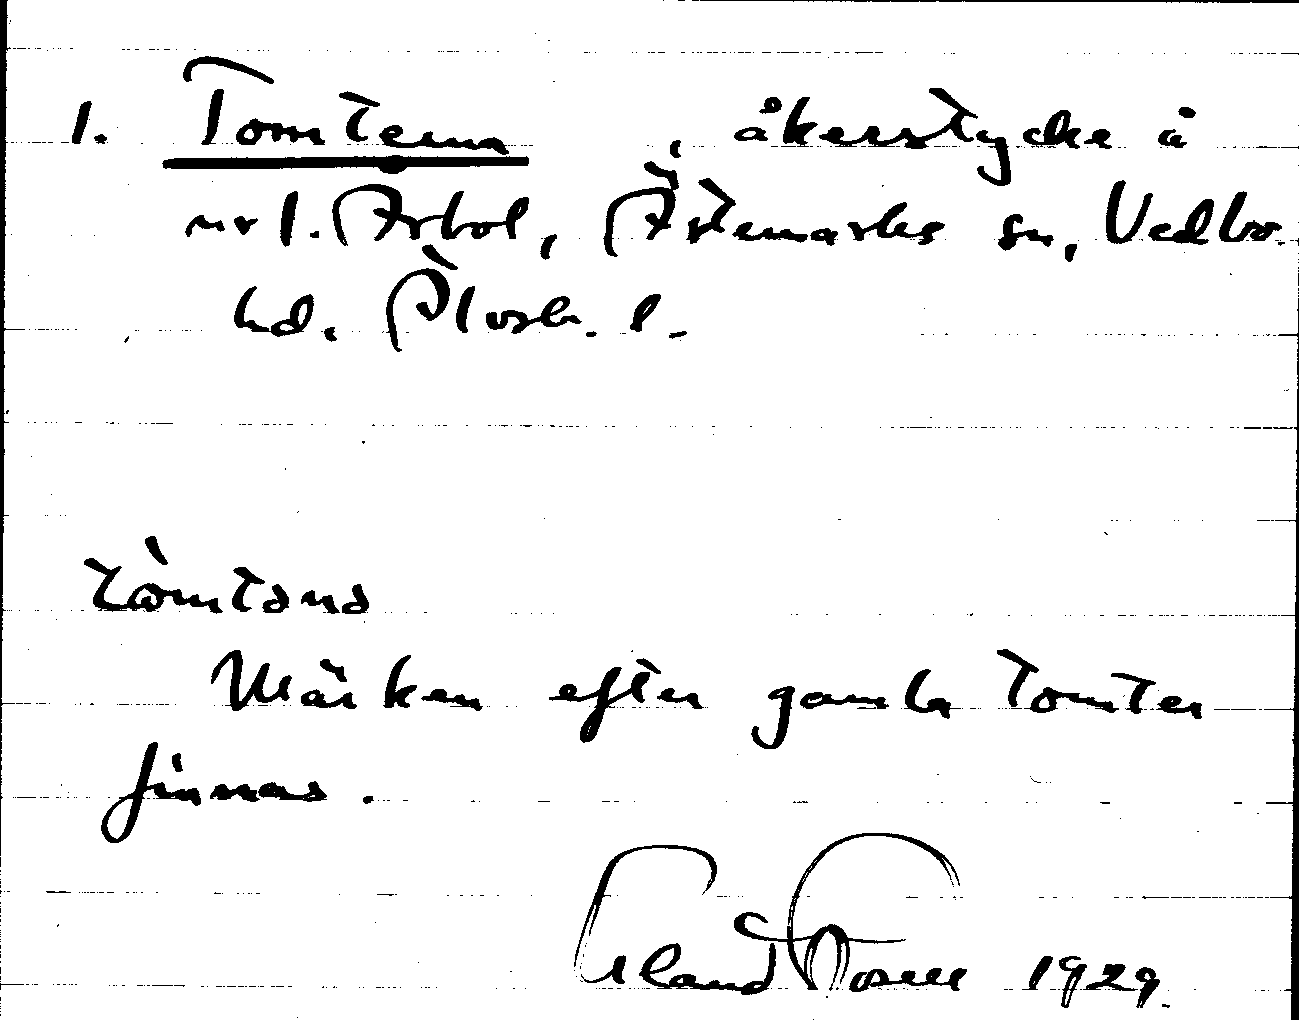 1. Tomterna, åkerstycke å
nr 1. Årbol, Ärtemarks sn, Vedbo
hd. Älvsb. l.
tòmtana
Märken efter gamla tomter
finnas.
Erland Rosell 1929